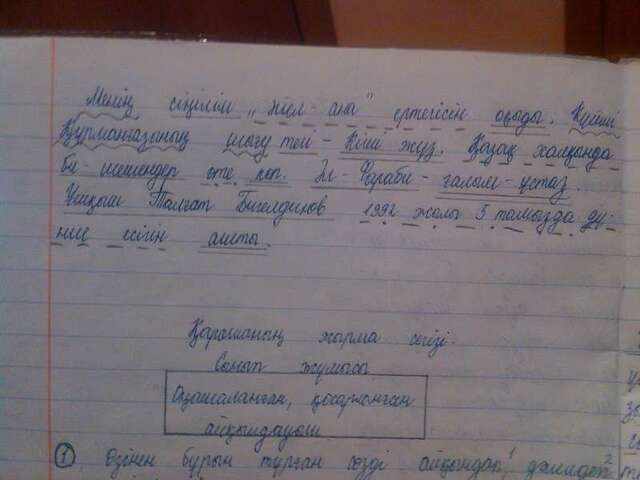 Менің сіңілім „Жел-ана" ертегісін оқыды. Күйші
Құрманғазының шығу тегі - Кіші жүз. Қазақ халқында
би-шешендер өте көп. Әл-Фараби - ғалым-ұстаз.
Ұшқыш Талғат Бигелдинов 1992 жылы 5 тамызда дү-
ние есігін ашты.
Қарашаның жиырма сегізі.
Сынып жұмысы
Оңашаланған, қосарланған
айқындауыш
1. Өзінен бұрын тұрған сөзді айқындап,¹ дәлелдеп²